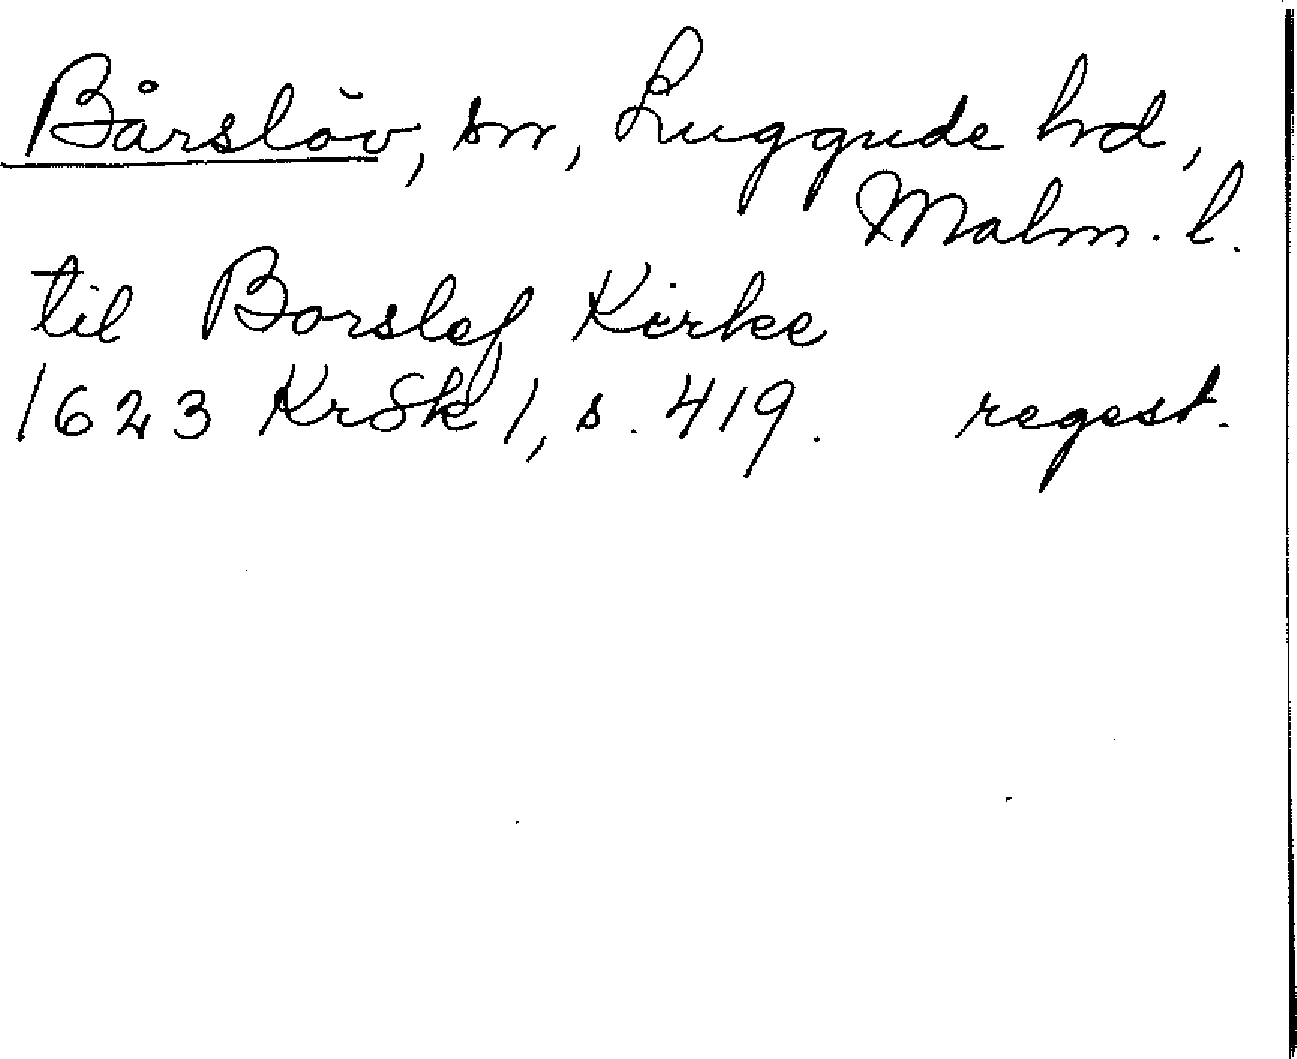 Bårslöv, sn, Luggude hd,
Malm. l.
til Borslef Kirke
1623 KrSk 1, s. 419. regest.